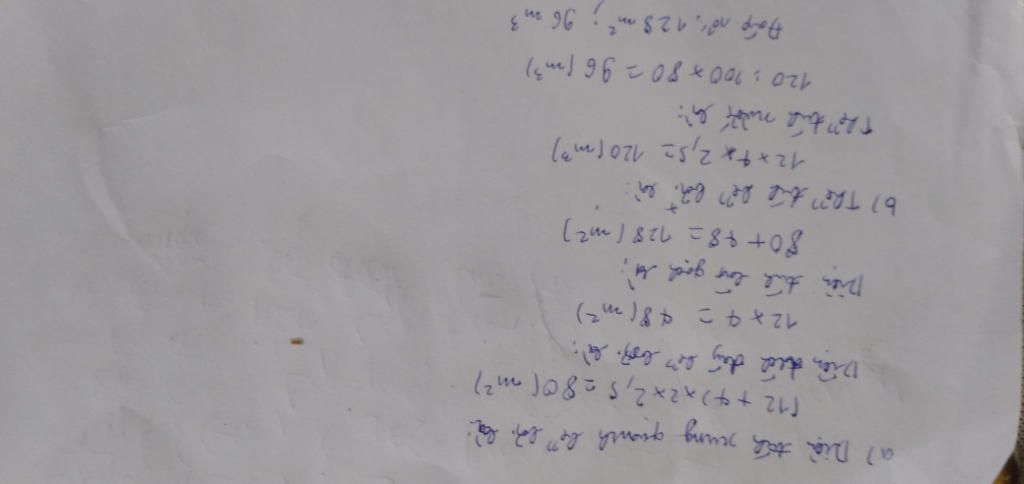 a) Diện tích xung quanh bể bơi là:
(12 + 4) x 2 x 2,5 = 80 (m²)
Diện tích đáy bể bơi là:
12 x 4 = 48 (m²)
Diện tích lát gạch là:
80 + 48 = 128 (m²)
b) Thể tích bể bơi là:
12 x 4 x 2,5 = 120 (m³)
Thể tích nước là:
120 : 100 x 80 = 96 (m³)
Đáp số: 128 m² ; 96 m³